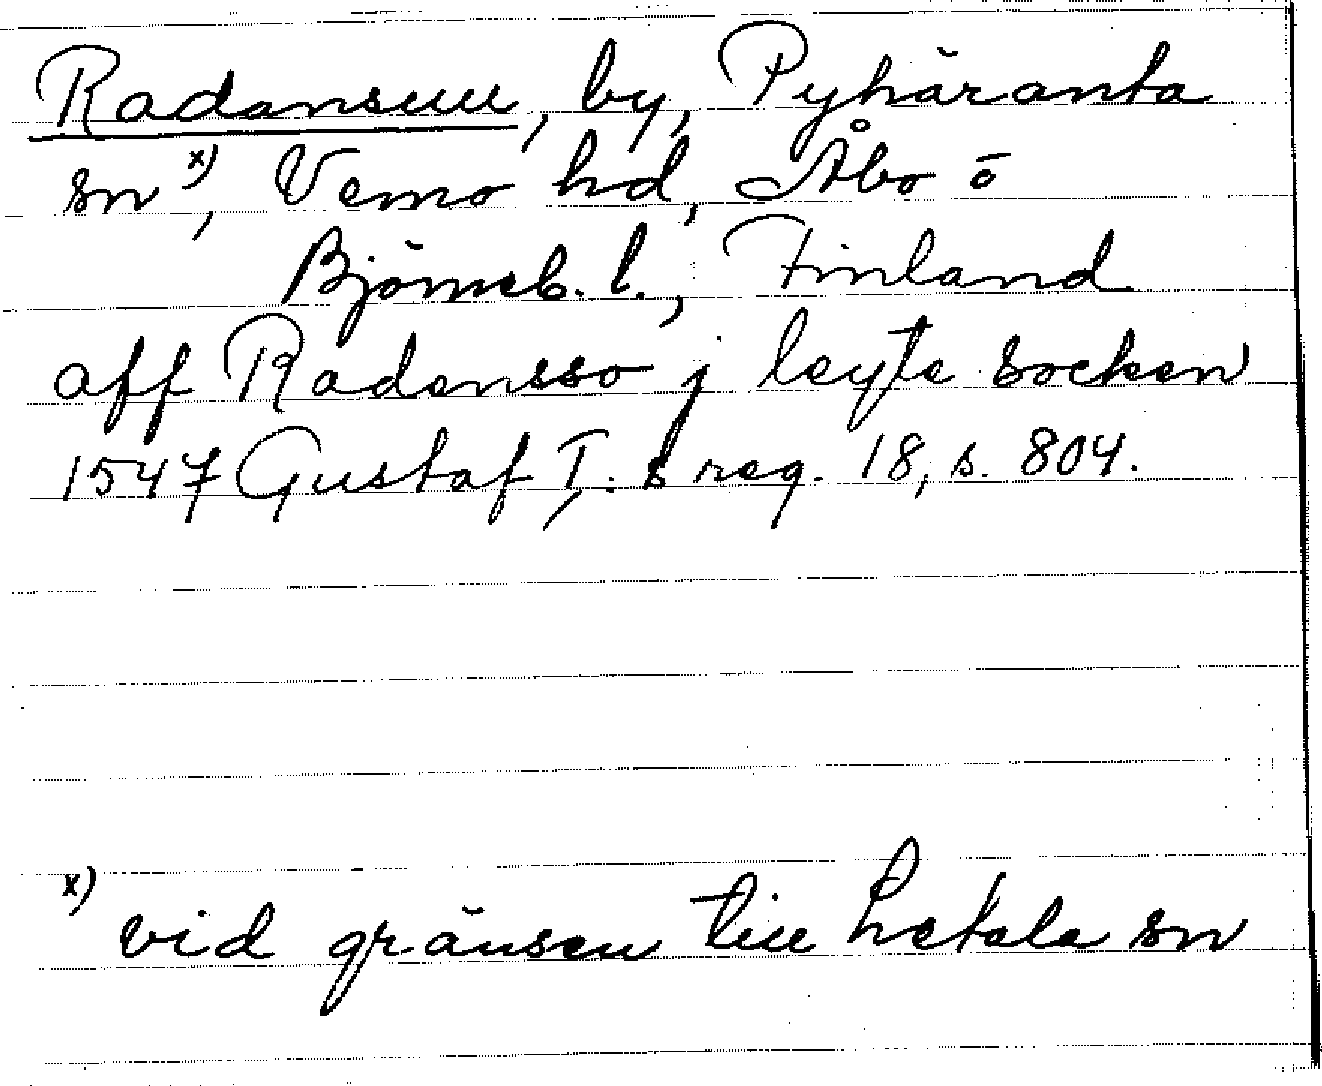 Radansuu, by, Pyhäranta
sn x), Vemo hd, Åbo o
Björneb. l., Finland
aff Radensso j leyte socken
1547 Gustaf I:s reg. 18, s. 804.
x) vid gränsen till Letala sn